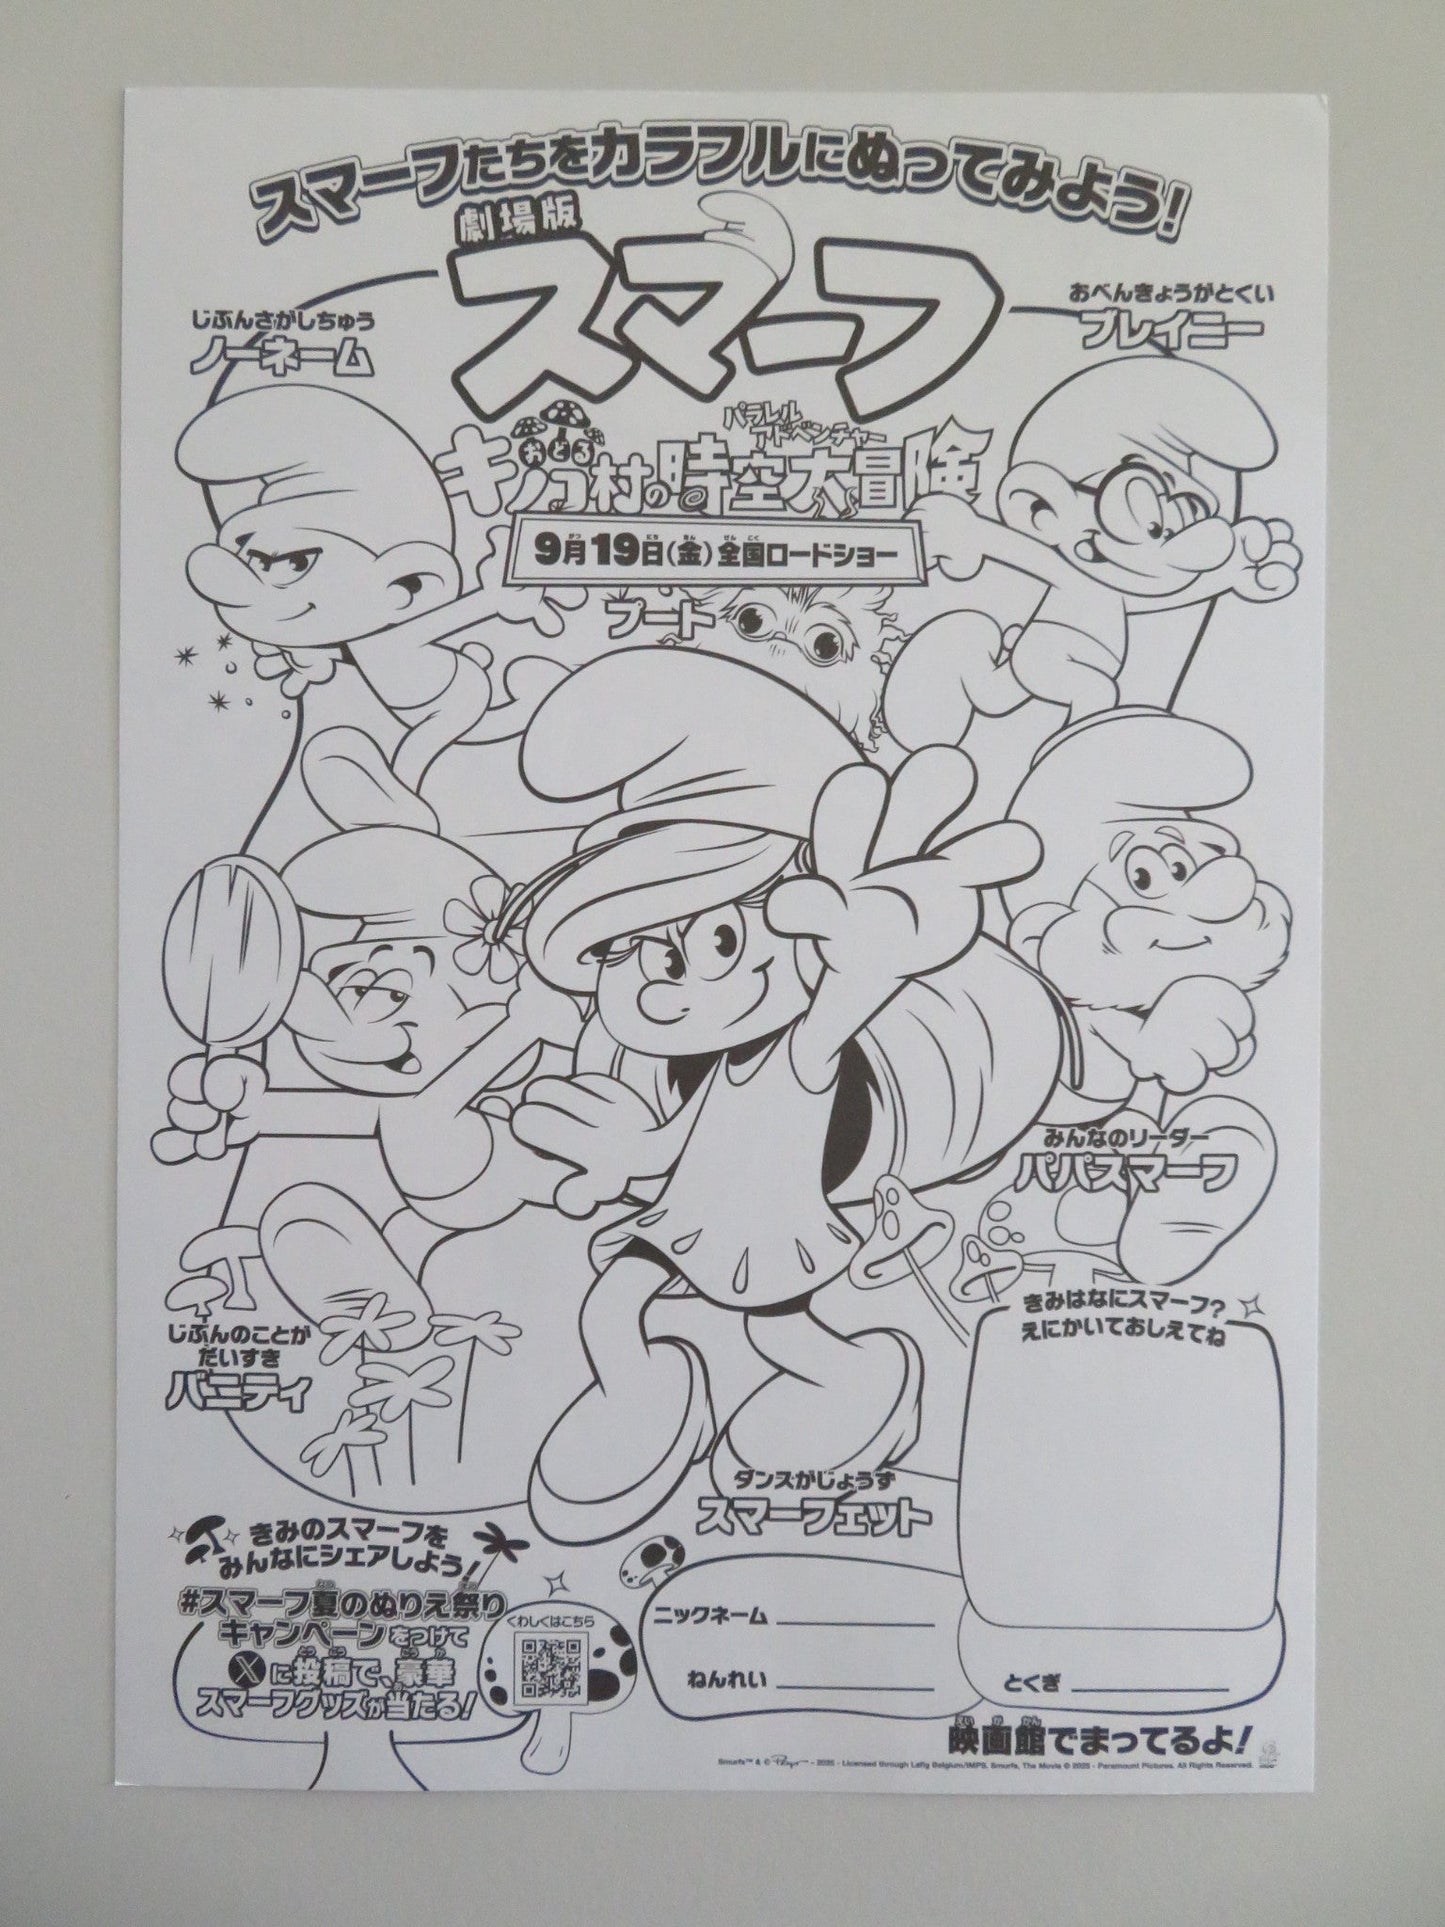 スマーフたちをカラフルにぬってみよう!
劇場版
スマーフ
おどる
キノコ村の時空大冒険
パラレル
アドベンチャー
9月19日(金)全国ロードショー
がつ にち きん ぜん こく
じぶんさがしちゅう
ノーネーム
おべんきょうがとくい
ブレイニー
プート
みんなのリーダー
パパスマーフ
じぶんのことが
だいすき
バニティ
きみはなにスマーフ?
えにかいておしえてね
ダンスがじょうず
スマーフェット
きみのスマーフを
みんなにシェアしよう!
#スマーフ夏のぬりえ祭り
キャンペーンをつけて
Xに投稿で、豪華
スマーフグッズが当たる!
くわしくはこちら
ニックネーム
ねんれい
とくぎ
映画館でまってるよ!
えい が かん
Smurfs™ & © Peyo - 2025 - Licensed through Lafig Belgium/IMPS. Smurfs, The Movie © 2025 - Paramount Pictures. All Rights Reserved.